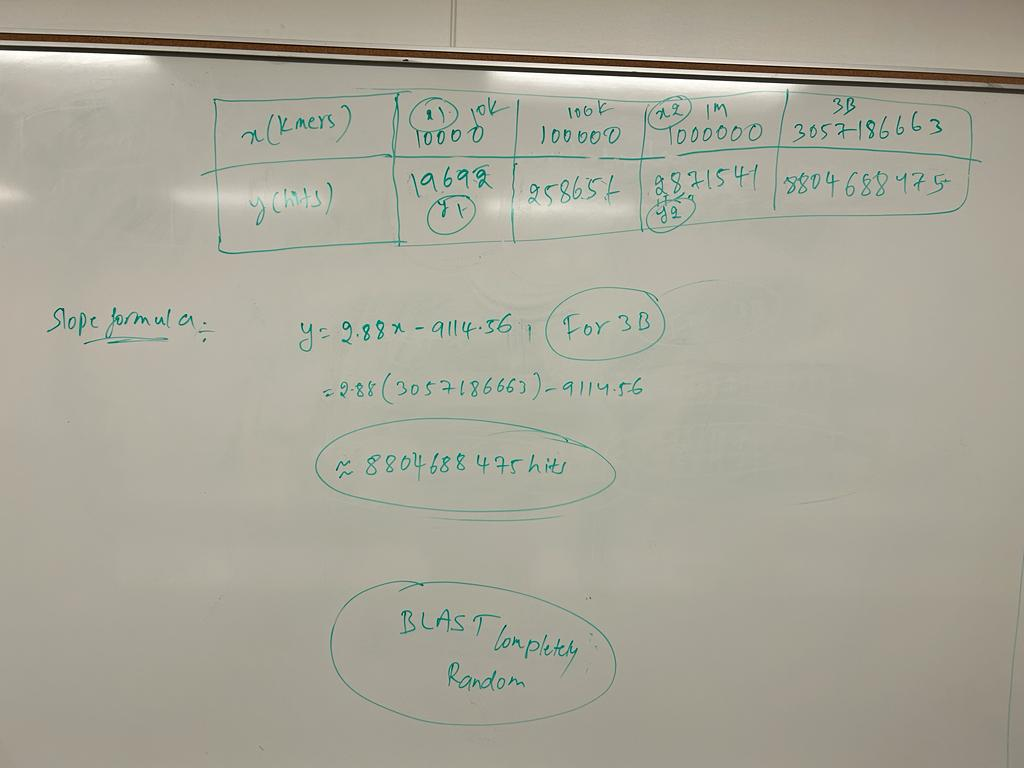 x(kmers) x1 10k 10000 100k 100000 x2 1m 1000000 3B 3057186663
y(hits) 19692 y1 258657 2871541 y2 8804688475
Slope formula:
y = 2.88x - 9114.56, For 3B
= 2.88(3057186663) - 9114.56
≈ 8804688475 hits
BLAST Completely
Random